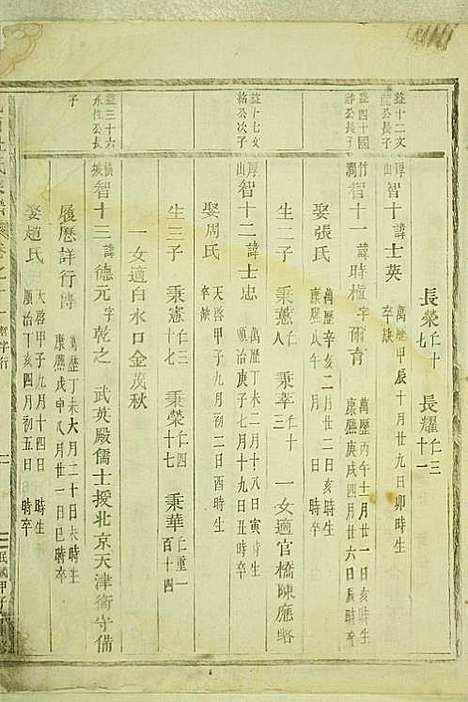 長榮仁十七 長耀仁三十一
益十二文山公長子
厚山 智十 諱士英 萬曆甲辰十月廿九日卯時生 卒缺
益四十國静公長子
竹澗 智十一 諱時權字爾育 萬曆丙午十二月廿一日亥時生 康熙庚戌四月廿六日亥時卒
娶張氏 萬曆辛亥二月廿二日亥時生 康熙戊午
生二子 秉憲 秉莘仁十三 一女適官橋陳應略
益十七文公次子
厚山 智十二 諱士忠 萬曆丁未二月十八日寅時生 順治庚子七月十九日丑時卒
娶周氏 天啓甲子九月初二日酉時生 卒缺
生三子 秉憲仁十七 秉榮仁四十七 秉華仁重一百十四
一女適白水口金茂秋
益三十六永住公長子
橫城 智十三 諱德元字乾之 武英殿儒士授北京天津衛守備
履歷詳行傳 萬曆丁未六月二十日未時生 康熙戊申八月廿一日巳時卒
娶趙氏 天啓甲子九月十四日時生 順治丁亥四月初五日時卒
行
民國甲子